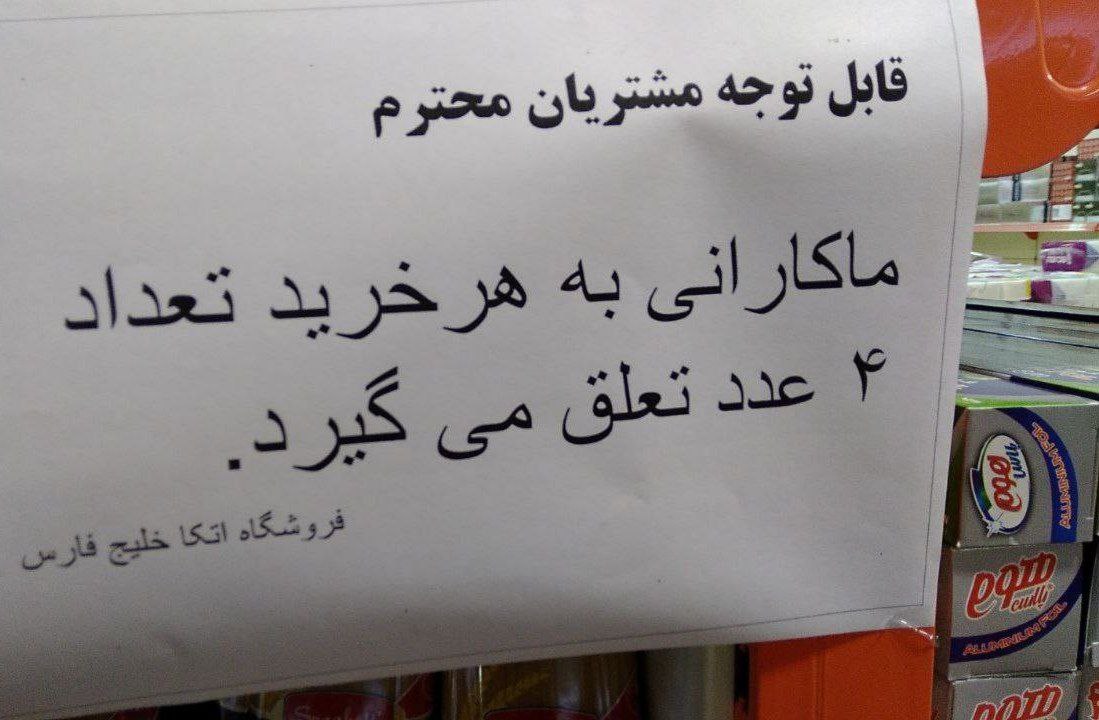 قابل توجه مشتریان محترم
ماکارانی به هر خرید تعداد
۴ عدد تعلق می گیرد.
فروشگاه اتکا خلیج فارس
ALUMINIUM FOIL
ALUMINIUM FOIL